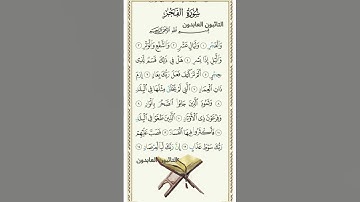 سُورَةُ الْفَجْرِ
التائبون العابدون
بِسْمِ اللَّهِ الرَّحْمَٰنِ الرَّحِيمِ
وَالْفَجْرِ ١ وَلَيَالٍ عَشْرٍ ٢ وَالشَّفْعِ وَالْوَتْرِ ٣
وَاللَّيْلِ إِذَا يَسْرِ ٤ هَلْ فِي ذَٰلِكَ قَسَمٌ لِّذِي
حِجْرٍ ٥ أَلَمْ تَرَ كَيْفَ فَعَلَ رَبُّكَ بِعَادٍ ٦ إِرَمَ
ذَاتِ الْعِمَادِ ٧ الَّتِي لَمْ يُخْلَقْ مِثْلُهَا فِي الْبِلَادِ ٨
وَثَمُودَ الَّذِينَ جَابُوا الصَّخْرَ بِالْوَادِ ٩
وَفِرْعَوْنَ ذِي الْأَوْتَادِ ١٠ الَّذِينَ طَغَوْا فِي الْبِلَادِ
١١ فَأَكْثَرُوا فِيهَا الْفَسَادَ ١٢ فَصَبَّ عَلَيْهِمْ
رَبُّكَ سَوْطَ عَذَابٍ ١٣ إِنَّ رَبَّكَ لَبِالْمِرْصَادِ ١٤
التائبون العابدون